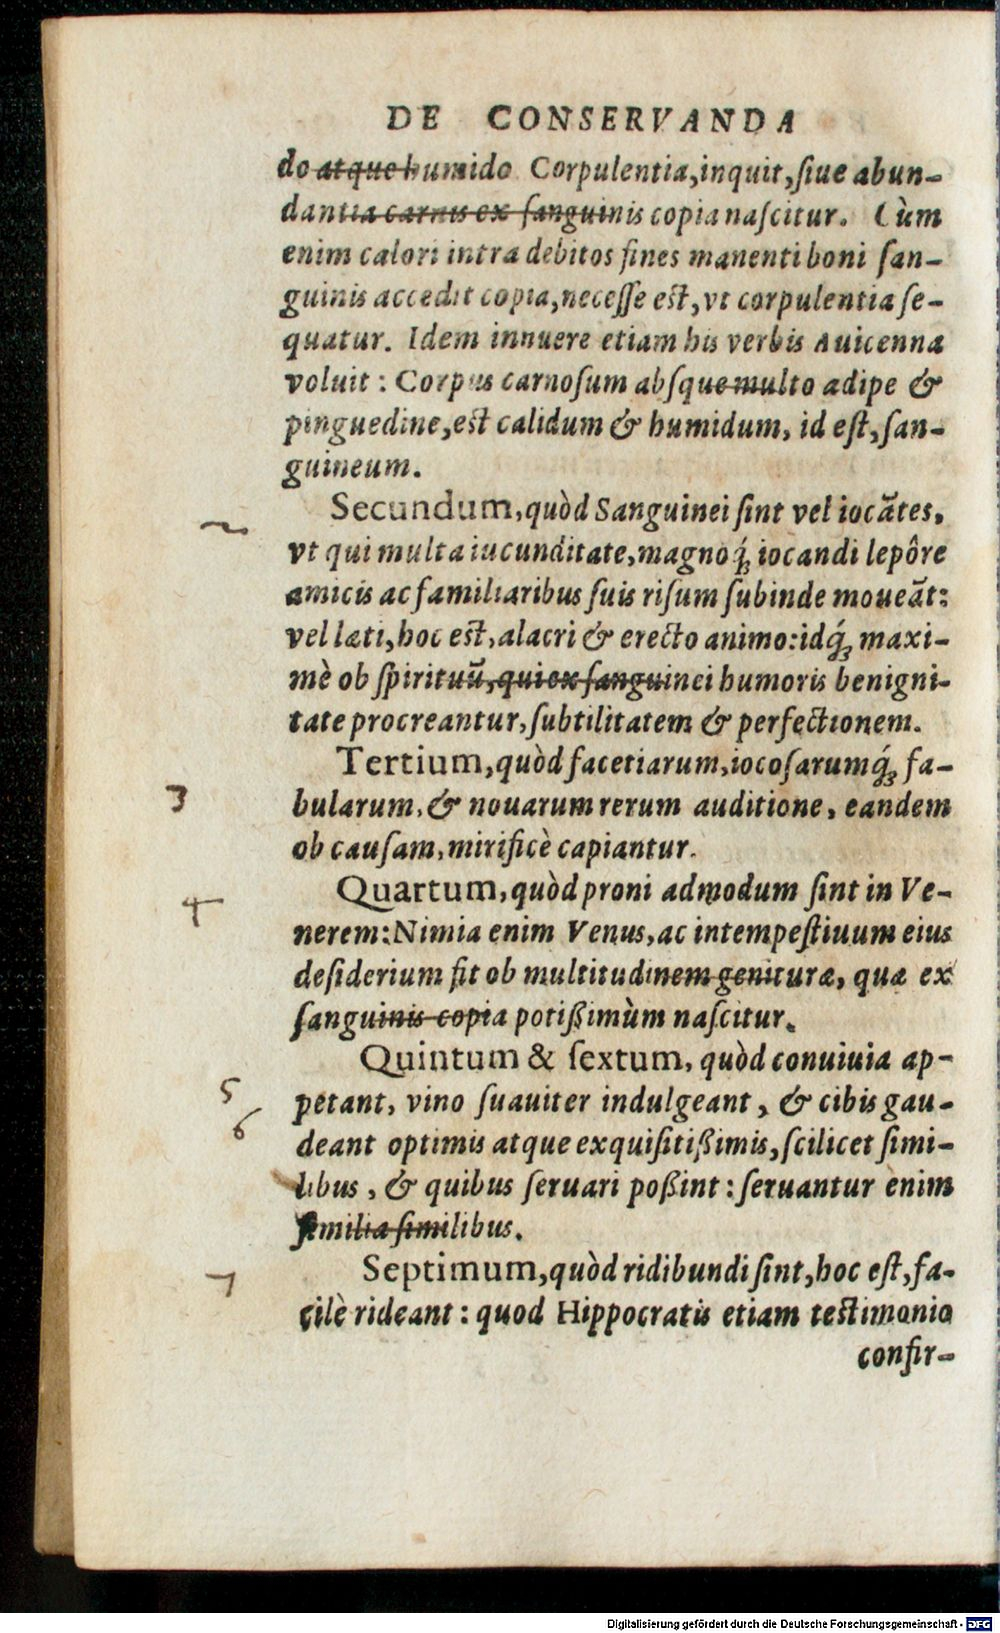 DE CONSERVANDA
do atque humido Corpulentia, inquit, ſiue abun-
dantia carnis ex ſanguinis copia naſcitur. Cùm
enim calori intra debitos fines manenti boni ſan-
guinis accedit copia, neceſſe eſt, vt corpulentia ſe-
quatur. Idem innuere etiam his verbis Auicenna
voluit: Corpus carnoſum abſque multo adipe &
pinguedine, eſt calidum & humidum, id eſt, ſan-
guineum.
2
Secundum, quòd Sanguinei ſint vel iocātes,
vt qui multa iucunditate, magnoq́; iocandi lepôre
amicis ac familiaribus ſuis riſum ſubinde moueāt:
vel læti, hoc eſt, alacri & erecto animo: idq́; maxi-
mè ob ſpirituū, qui ex ſanguinei humoris benigni-
tate procreantur, ſubtilitatem & perfectionem.
3
Tertium, quòd facetiarum, iocoſarumq́; fa-
bularum, & nouarum rerum auditione, eandem
ob cauſam, mirificè capiantur.
4
Quartum, quòd proni admodum ſint in Ve-
nerem: Nimia enim Venus, ac intempeſtiuum eius
deſiderium fit ob multitudinem genituræ, quæ ex
ſanguinis copia potißimùm naſcitur.
5
6
Quintum & ſextum, quòd conuiuia ap-
petant, vino ſuauiter indulgeant, & cibis gau-
deant optimis atque exquiſitißimis, ſcilicet ſimi-
libus, & quibus ſeruari poßint: ſeruantur enim
ſimilia ſimilibus.
7
Septimum, quòd ridibundi ſint, hoc eſt, fa-
cilè rideant: quod Hippocratis etiam teſtimonio
confir-
Digitalisierung gefördert durch die Deutsche Forschungsgemeinschaft - DFG